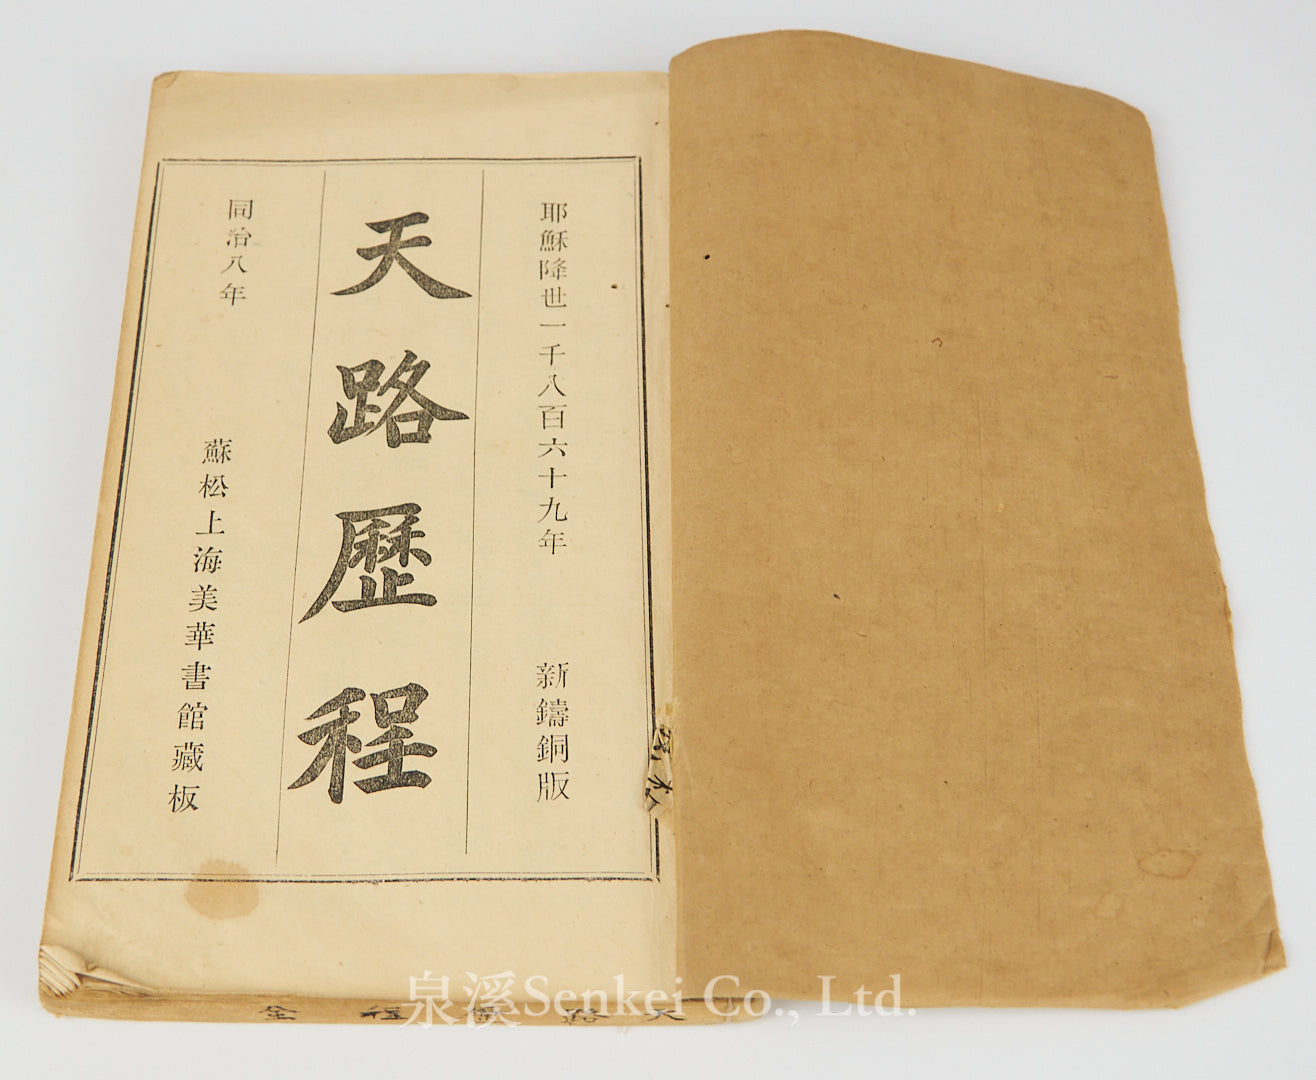 耶穌降世一千八百六十九年 新鑄銅版
天路歷程
同治八年 蘇松上海美華書館藏板
天路歷程全
泉溪Senkei Co., Ltd.